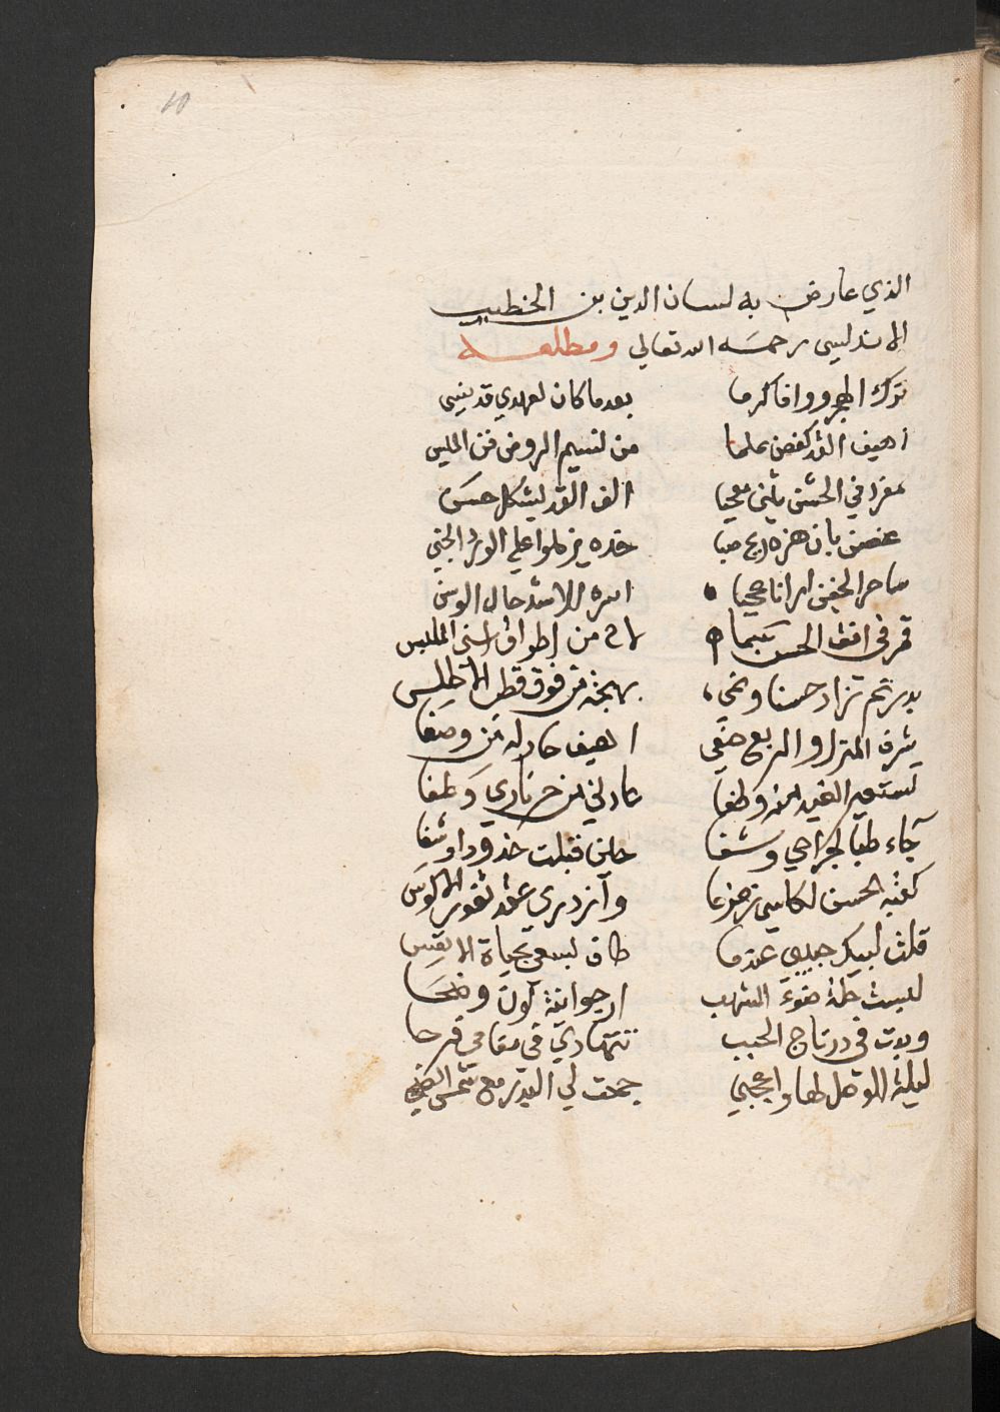 10
الذي عارض به لسان الدين بن الخطيب
الاندلسي رحمه الله تعالي ومطلعه
ترك الهجر ووافا كرما بعد ما كان لعهدي قد نسي
اهيف القد كغصن علما من نسيم الروض فن الميس
مفرد في الحسن يثني معجبا الف القد ليشكل حسن
غصن بان هزه ريح صبا خده يزهوا علي الورد الجني
ساحر الجفن ارانا عجبا اسره للاسد حال الوسن
قمر في افق الحسن سما لاح من اطواق اسنى الملبس
بدر تم زاد حسنا ونمى بهجة من فوق قطر الاطلس
شرف المنزل والربع اهيف حاز له من وصفا
تستعير الغيد منه وطفا نارى وطفا
جاء طبا لجراحي وشفا حين قبلت خدودا وشفا
كعبة الحسن لكاسي زمزما وازدري عقد ثغور الاكوس
قلت لبيك حبيبي عندما طاف يسعى بحياة الانفس
لبست حلة ضوء الشهب ارجوانية لون وضحا
وبدت في در تاج الحبب تتهادي في مقامي فرحا
ليلة الوصل لها واعجبي جمعت لي البدر مع شمس الضحى